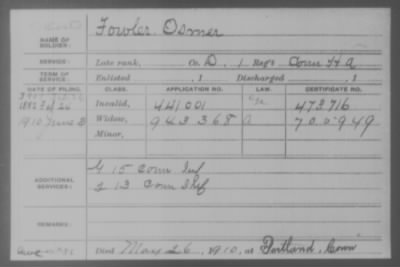 NAME OF SOLDIER: Fowler Osmer
SERVICE: Late rank, Co. D, 1 Reg't Conn H A
TERM OF SERVICE: Enlisted , 1 Discharged , 1
DATE OF FILING. CLASS. APPLICATION NO. LAW. CERTIFICATE NO.
Invalid, 441001 473716
1910 June Widow, 943368 a 700949
Minor,
ADDITIONAL SERVICES: G 15 Conn Inf
13 Conn Inf
REMARKS:
Died May 26, 1910, at Portland, Conn